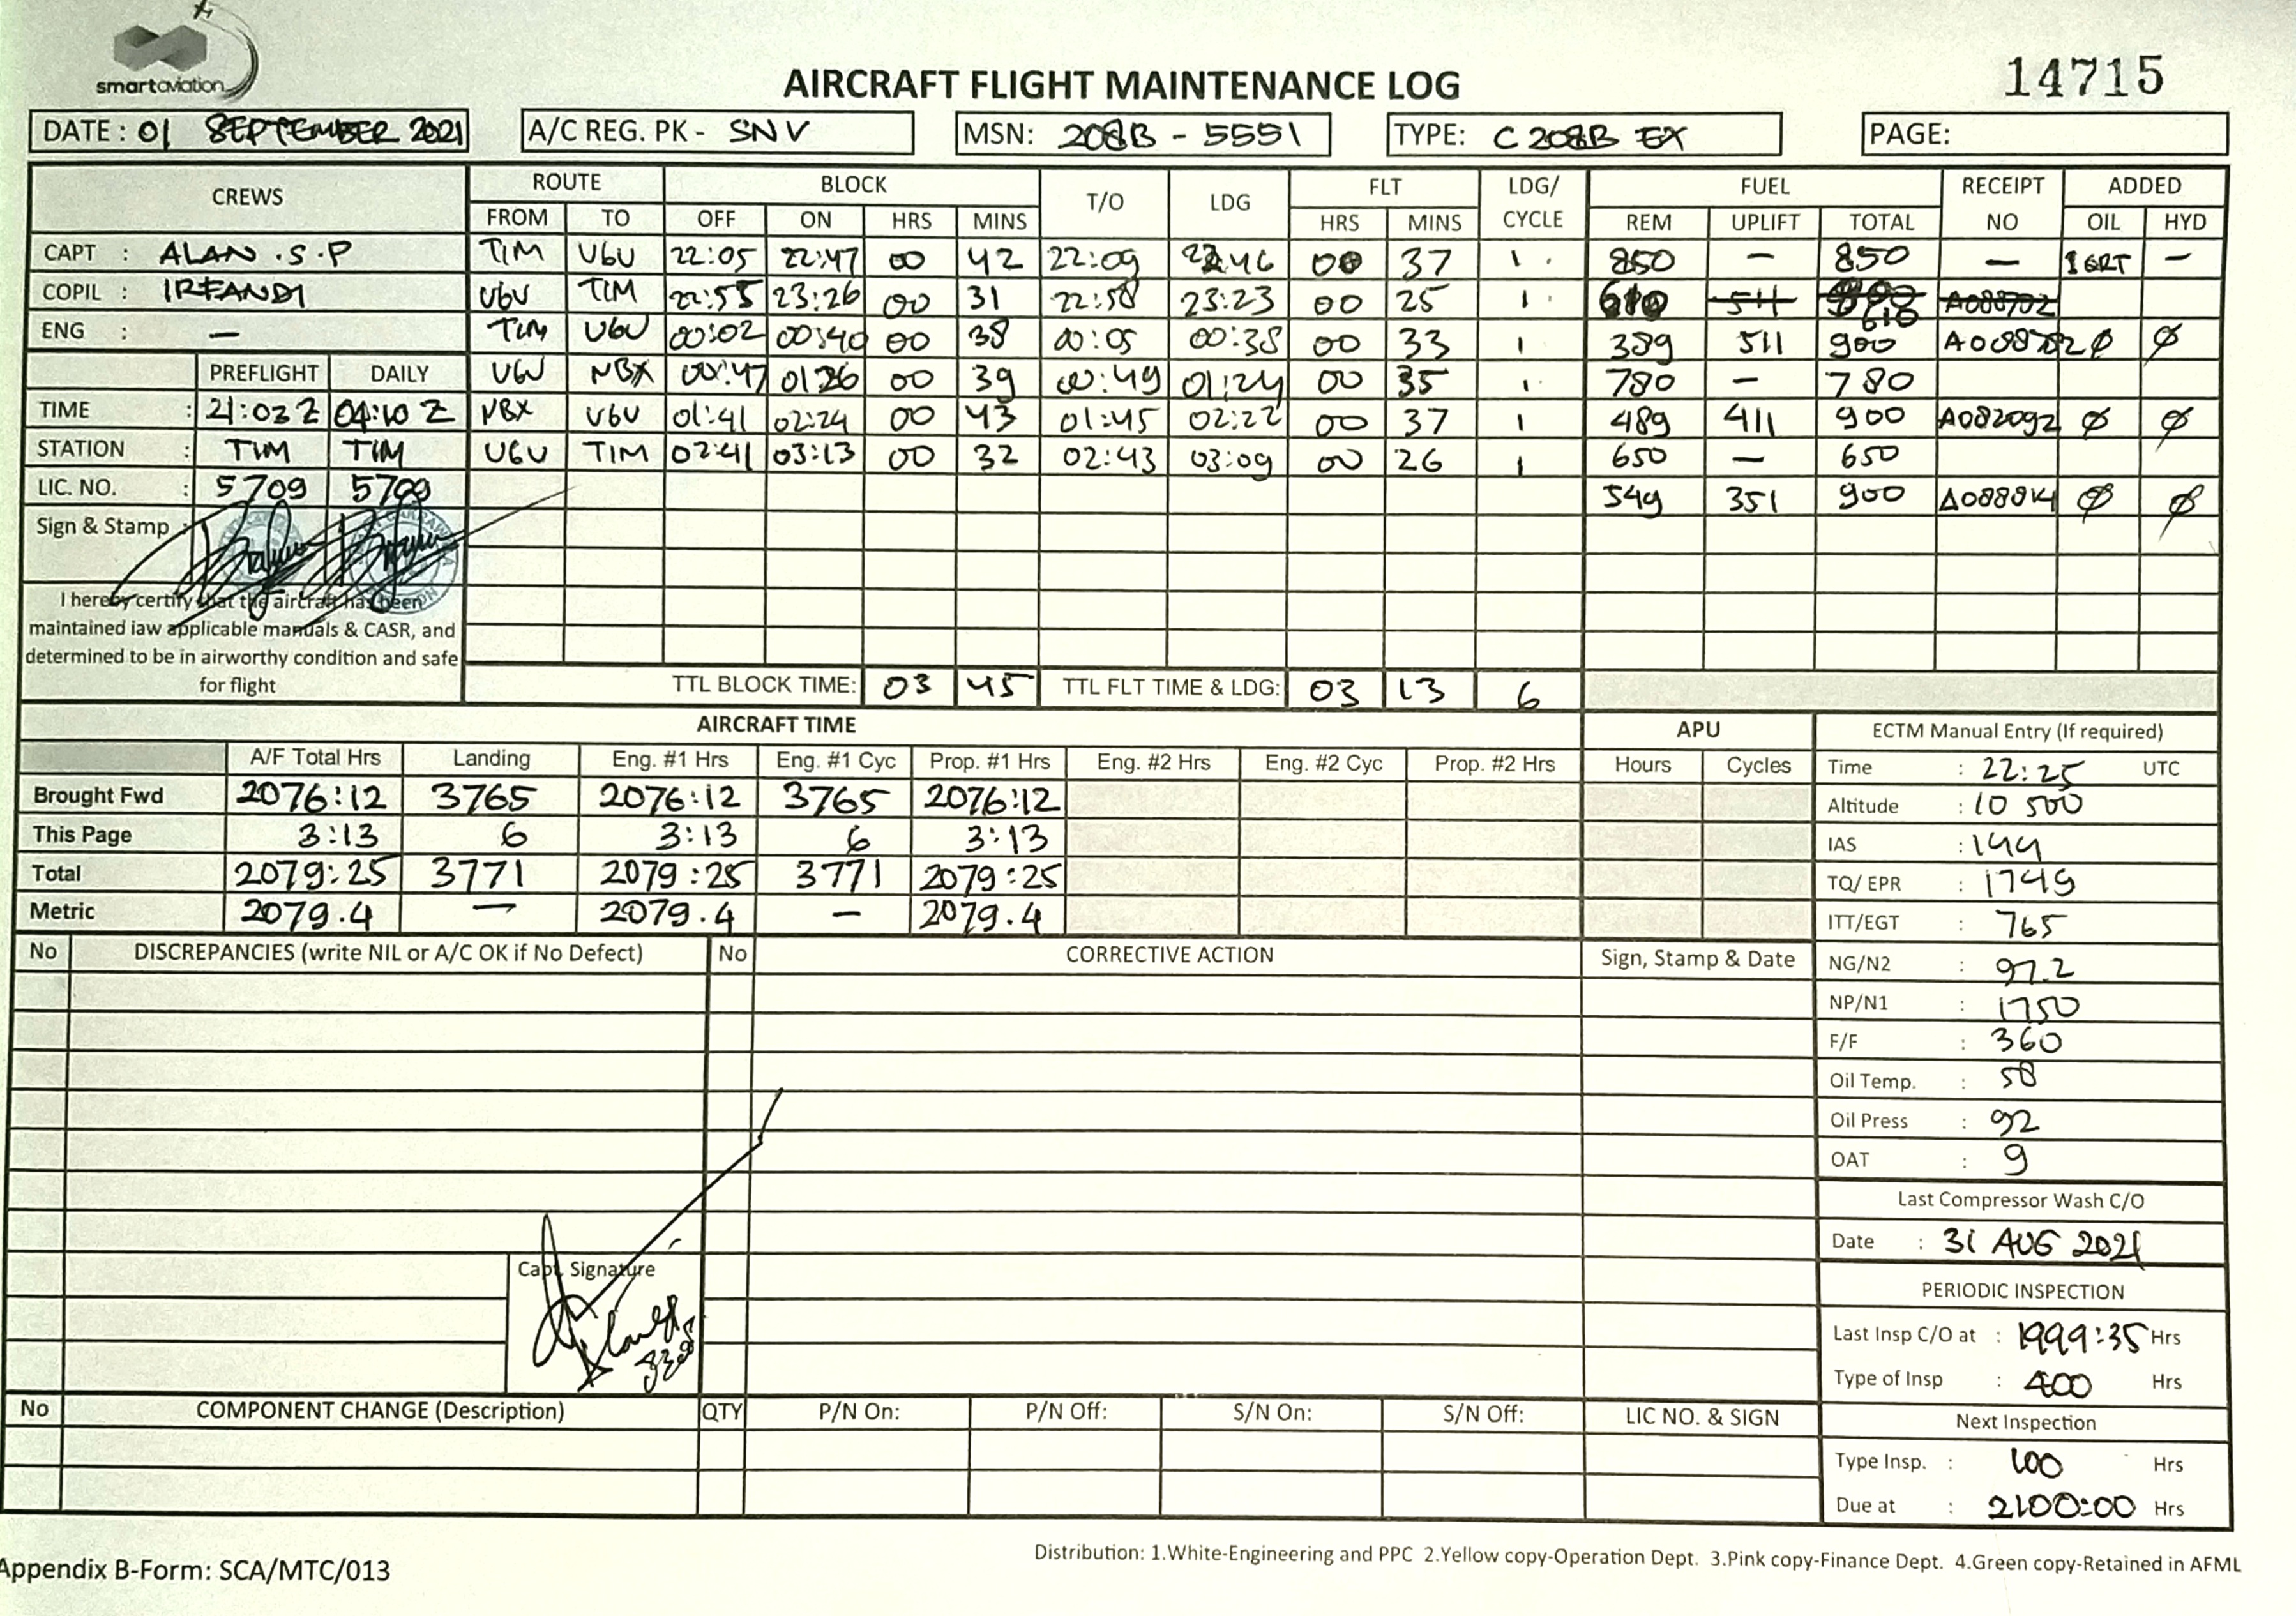 smartaviation
AIRCRAFT FLIGHT MAINTENANCE LOG
14715
DATE : 01 SEPTEMBER 2021 A/C REG. PK - SNV MSN: 208B - 5551 TYPE: C 208B EX PAGE:
CREWS ROUTE BLOCK T/O LDG FLT LDG/ CYCLE FUEL RECEIPT NO ADDED
FROM TO OFF ON HRS MINS HRS MINS REM UPLIFT TOTAL OIL HYD
CAPT : ALAN .S.P TIM UGU 22:05 22:47 00 42 22:09 22:46 00 37 1 850 — 850 — 1 GRT —
COPIL : IRFANDI UGU TIM 22:55 23:26 00 31 22:58 23:23 00 25 1 610 511 610 A088702
ENG : — TIM UGU 00:02 00:40 00 38 00:05 00:38 00 33 1 389 511 900 A088702 Ø Ø
PREFLIGHT DAILY UGU NBX 00:47 01:26 00 39 00:49 01:24 00 35 1 780 — 780
TIME : 21:03 Z 04:10 Z NBX UGU 01:41 02:24 00 43 01:45 02:22 00 37 1 489 411 900 A082092 Ø Ø
STATION : TIM TIM UGU TIM 02:41 03:13 00 32 02:43 03:09 00 26 1 650 — 650
LIC. NO. : 5709 5709 549 351 900 A088814 Ø Ø
Sign & Stamp
I hereby certify that the aircraft has been
maintained iaw applicable manuals & CASR, and
determined to be in airworthy condition and safe
for flight
TTL BLOCK TIME: 03 45 TTL FLT TIME & LDG: 03 13 6
AIRCRAFT TIME APU
A/F Total Hrs Landing Eng. #1 Hrs Eng. #1 Cyc Prop. #1 Hrs Eng. #2 Hrs Eng. #2 Cyc Prop. #2 Hrs Hours Cycles
Brought Fwd 2076:12 3765 2076:12 3765 2076:12
This Page 3:13 6 3:13 6 3:13
Total 2079:25 3771 2079:25 3771 2079:25
Metric 2079.4 — 2079.4 — 2079.4
ECTM Manual Entry (If required)
Time : 22:25 UTC
Altitude : 10 500
IAS : 144
TQ/ EPR : 1749
ITT/EGT : 765
NG/N2 : 97.2
NP/N1 : 1750
F/F : 360
Oil Temp. : 58
Oil Press : 92
OAT : 9
Last Compressor Wash C/O
Date : 31 AUG 2021
PERIODIC INSPECTION
Last Insp C/O at : 1999:35 Hrs
Type of Insp : 400 Hrs
Next Inspection
Type Insp. : 100 Hrs
Due at : 2100:00 Hrs
No DISCREPANCIES (write NIL or A/C OK if No Defect) No CORRECTIVE ACTION Sign, Stamp & Date
Capt. Signature
No COMPONENT CHANGE (Description) QTY P/N On: P/N Off: S/N On: S/N Off: LIC NO. & SIGN
Appendix B-Form: SCA/MTC/013
Distribution: 1.White-Engineering and PPC 2.Yellow copy-Operation Dept. 3.Pink copy-Finance Dept. 4.Green copy-Retained in AFML